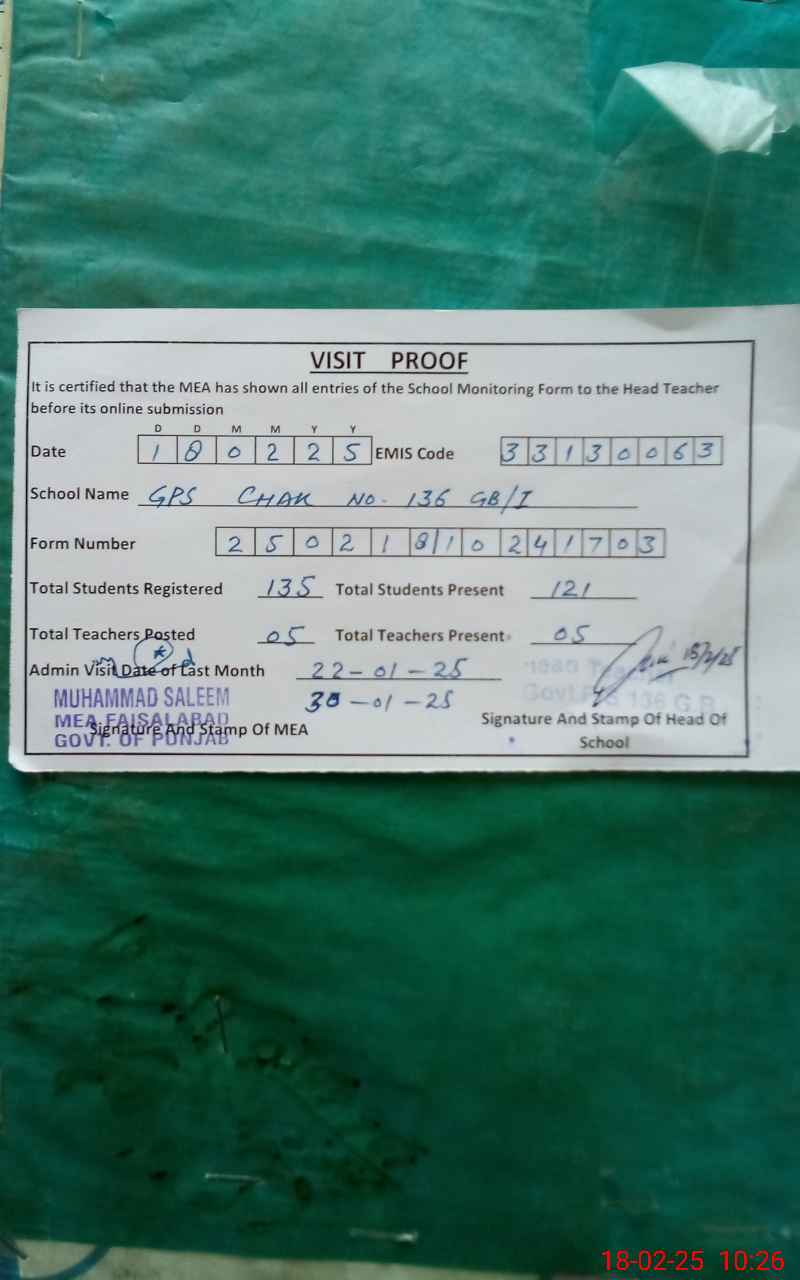 VISIT PROOF
It is certified that the MEA has shown all entries of the School Monitoring Form to the Head Teacher
before its online submission
D D M M Y Y
Date 1 8 0 2 2 5 EMIS Code 3 3 1 3 0 0 6 3
School Name GPS CHAK NO. 136 GB/I
Form Number 2 5 0 2 1 8 1 0 2 4 1 7 0 3
Total Students Registered 135 Total Students Present 121
Total Teachers Posted 05 Total Teachers Present 05
Admin Visit Date of Last Month 22-01-25
30-01-25
18/2/25
MUHAMMAD SALEEM
MEA FAISALABAD
GOVT. OF PUNJAB
Signature And Stamp Of MEA
136 G.B
Signature And Stamp Of Head Of
School
18-02-25 10:26